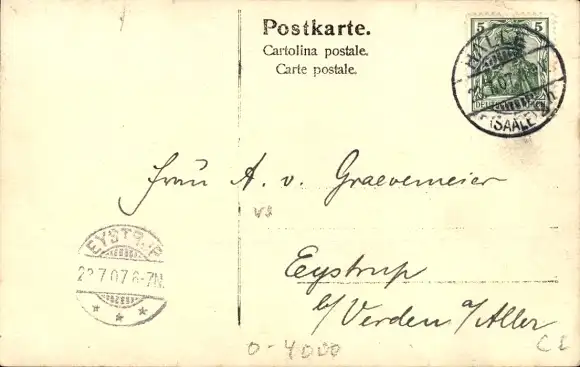 Postkarte.
Cartolina postale.
Carte postale.
5 5
HALLE
07
(SAALE)
DEUTSCHES REICH
Frau A. v. Graevemeier
Eystrup
b/Verden a/Aller
EYSTRUP
22.7.07. 6-7N.
0-4000